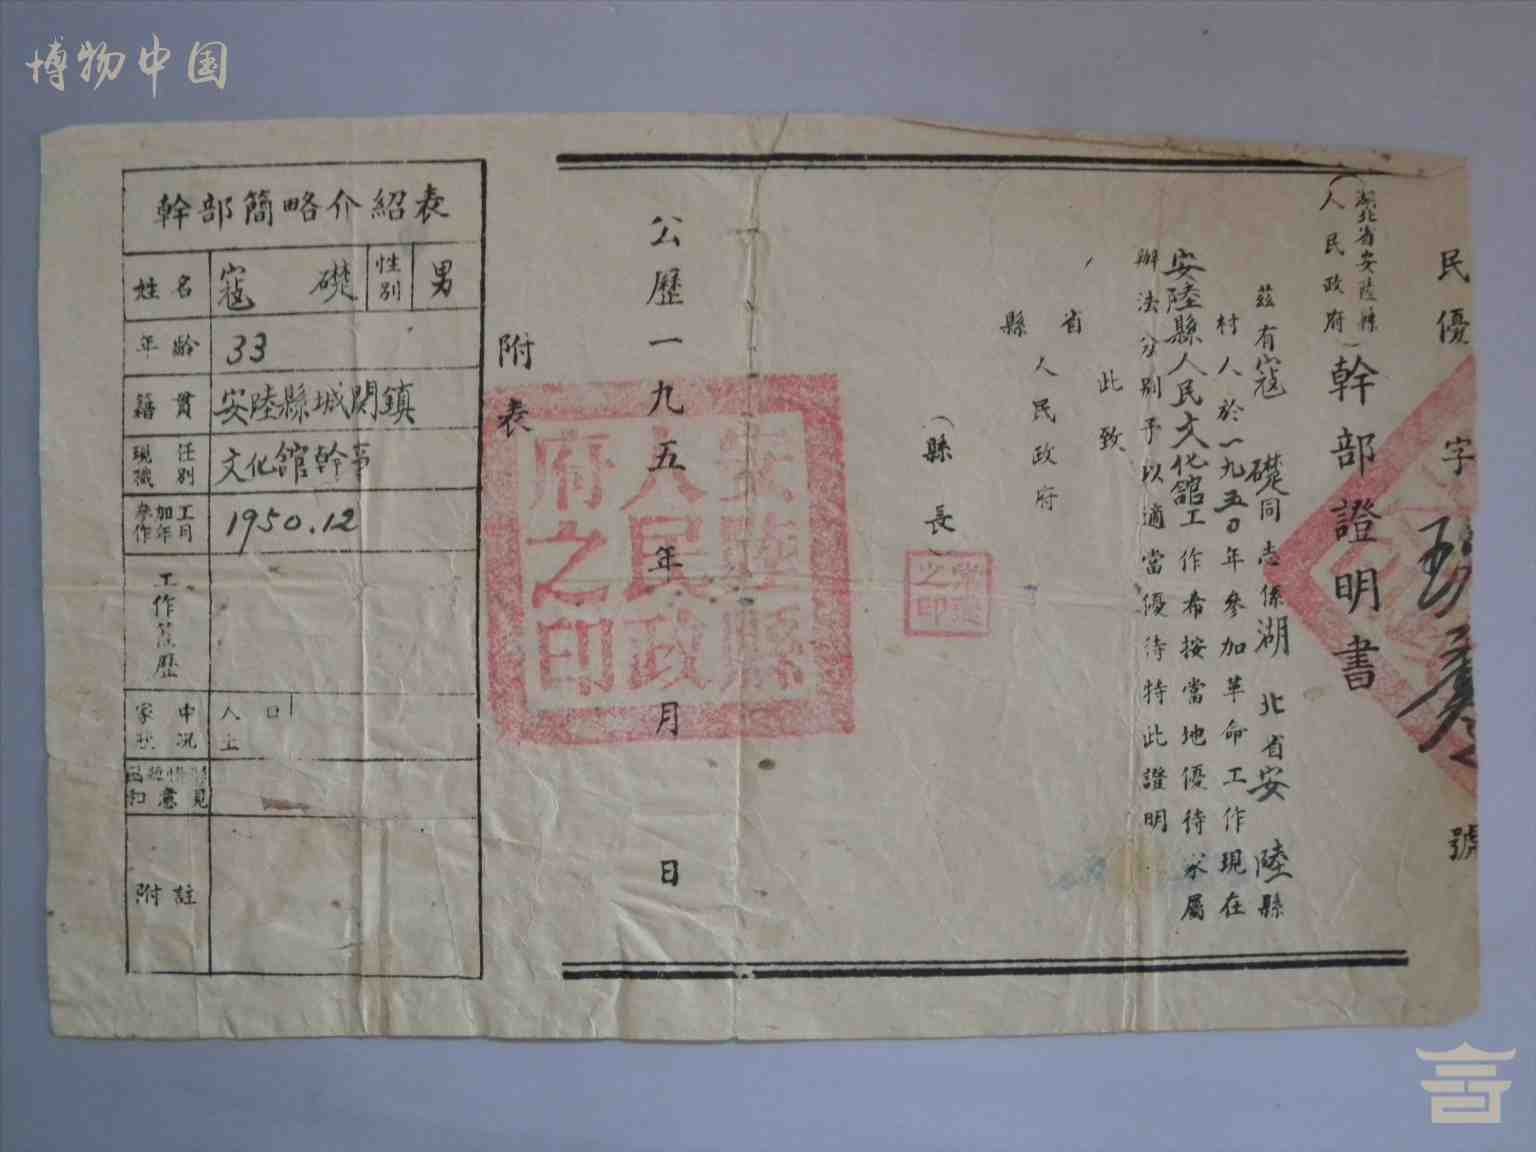 博物中国
民優字號
(湖北省安陸縣
人民政府)
幹部證明書
茲有寇礎同志係湖北省安陸縣
村人於一九五0年參加革命工作現在
安陸縣人民文化舘工作希按當地優待家屬
辦法分別予以適當優待特此證明
此致
省
縣
人民政府
(縣長)
之印
公歷一九五年月日
安陸縣
人民政
府之印
附表
幹部簡略介紹表
姓名 寇礎 性別 男
年齡 33
籍貫 安陸縣城関鎮
現任職別 文化舘幹事
參加工作年月 1950.12
工作簡歷
家中狀況 人口
附註